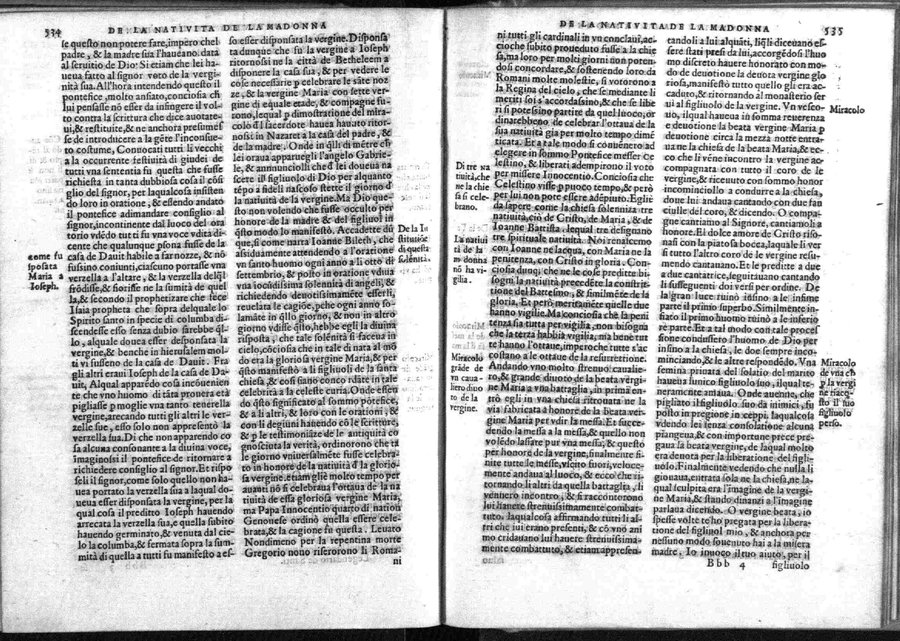 334
DE LA NATIVITA DE LA MADONNA
se questo non potere fare, impero chel
padre, & la madre sua l'haueano data
al seruitio de Dio: Si etiam che lei ha-
ueua fatto al signor voto de la vergi-
nita sua. All'hora intendendo questo il
pontefice, molto ansiato, conciosia ch
lui pensasse nõ esser da infingere il vol-
to contra la scrittura che dice auotate-
ui, & restituite, & ne anchora presumes
se de introducere a la gẽte l'inconsue-
to costume, Conuocati tutti li vecchi
a la occurrente festiuità di giudei de
tutti vna sententia fu questa che fusse
richiesta in tanta dubbiosa cosa il cõsi
glio del signor, per laqualcosa insisten
do loro in oratione, & essendo andato
il pontefice adimandare consiglio al
signor, incontinente dal luoco del ora
torio vdédo tutti fu vna voce vdita di-
cente che qualunque psona fusse de la
casa de Dauit habile a far nozze, & nõ
fussino coniunti, ciascuno portasse vna
verzella a l'altare, & la verzella delql
frõdisse, & fiorisse ne la sumità de quel
la, & secondo il prophetizare che fece
Isaia propheta che sopra delquale lo
Spirito santo in specie di columba di-
scendesse esso senza dubio sarebbe ql-
lo, alquale doueua esser desponsata la
vergine, & benche in hierusalem mol-
ti vi fusseno de la casa de Dauit. Fra
gli altri eraui Ioseph de la casa de Da-
uit, Alqual apparẽdo cosa incõueniẽn
te che vno huomo di tãta prouera età
pigliasse p moglie vna tanto tenerella
vergine, arecando tutti gli altri le ver-
zelle sue, esso solo non appresentò la
verzella sua. Di che non apparendo co
sa alcuna consonante a la diuina voce,
imaginossi il pontefice de ritornare a
richiedere consiglio al signor. Et rispo
seli il signor, come solo quello non ha-
uea portato la verzella sua a laqual do-
ueua esser disponsata la vergine, per la
qual cosa il predito Ioseph hauendo
arrecata la verzella sua, e quella subito
hauendo germinato, & venuta dal cie-
lo la columba, & fermata sopra la sum-
mità di quella a tutti fu manifesto a es-
Come fu
sposata
Maria a
Ioseph.
so esser disponsata la vergine. Disponsa
ta dunque che fu la vergine a Ioseph
ritornosi ne la città de Betheleem a
disponere la casa sua, & per vedere le
cose necessarie p celebrare le sãte noz-
ze, & la vergine Maria con sette ver-
gine di equale etade, & compagne fu-
rono, lequal p dimostratione del mira-
colo dl sacerdote hauea hauuto ritor-
nosi in Nazaret a la casa del padre, &
de la madre. Onde in qlli dì mẽtre ch'
lei oraua apparueli l'angelo Gabrie-
le, & annunciolli che d'lei doueua na
scere il figliuolo di Dio per alquanto
tẽpo a fideli nascoso stette il giorno d'
la natiuità de la vergine. Ma Dio que-
sto non volendo che fusse occulto per
honore de la madre & del figliuol in
qsto modo lo manifestò. Accadette dũ
que, si come narra Ioanne Bilech, che
assiduamente attendendo a l'oratione
vn santo huomo ogni anno a li otto di
settembrio, & posto in oratione vdiua
vna iocudissima solennità di angeli, &
richiedendo denotissimamẽte esserli
reuelata le cagiõe, pche ogni anno so-
lamẽte in qllo giorno, & non in altro
giorno vdisse qsto, hebbe egli la diuina
risposta, che tale solẽnità si facea in
cielo, cõciosia che in tale dì nata al mõ
do era la gloriosa vergine Maria, & per
qsto manifestò a li figliuoli de la santa
chiesa, & cosi siano concordate in tale
celebrità a la celeste curia. Onde essen
do qsto significato al sommo põtefice,
& a li altri, & loro con le orationi, &
con li degiuni hauendo cõ le scritture,
& p le testimoniãze de le antiquità co
gnosciuta la verità, ordinorono che tà
le giorno vniuersalmẽte fusse celebra-
to in honore de la natiuità d' la glorio-
sa vergine, etiam gli e molto tempo per
auanti nõ si celebraua l'ottaua de la na
tiuità de essa gloriosa vergine Maria,
ma Papa Innocentio quarto di nation
Genouese ordinò quella essere cele-
brata, & la cagione fu questa. Leuato
Nondimeno per la repentina morte
Gregorio nono riserorono li Roma-
ni
De la In
stitutiõe
di questa
solẽnità.
DE LA NATIVITA DE LA MADONNA
535
ni tutti gli cardinali in vn conclaui, ac-
cioche subito proueduto fusse a la chie
sa, ma loro per molti giorni non poten-
dosi concordare, & sostenendo loro da
Romani molte molestie, si votorono a
la Regina del cielo, che se mediante li
meriti soi s'accordassino, & che se libe
ri si potessino partire da quel luoco, or
dinarebbeno de celebrar l'ottaua de la
sua natiuità gia per molto tempo dime
ticata. Et a tale modo si conuẽnero ad
elegere in sommo Pontefice messer Ce
lestino, & liberati adempirono il voto
per missere Innocentio. Conciosia che
Celestino visse p puoco tempo, & però
per lui non pote essere adẽpiuto. Eglie
da sapere come la chiesa solenniza tre
natiuità, cioè de Cristo, de Maria, & de
Ioanne Battista. lequal tre designano
tre spirituale natiuità. Noi renascemo
con Ioanne ne l'acqua, con Maria ne la
penitenza, con Cristo in gloria. Con-
ciosia dunque che ne le cose preditte bi-
sogni la natiuità precedẽte la constrit-
tione del Battesmo, & similmẽte de la
gloria, Et però meritamẽte quelle due
hanno vigilie. Ma conciosia che la peni
tenza sia tutta per vigilia, non bisogna
che la terza habbia vigilia, ma bene tut
te hanno l'ottaue, imperoche tutte s'ac
costano a le ottaue de la resurrettione.
Andando vno molto strenuo caualie-
ro, & grande diuoto de la beata vergi-
ne Maria a vna battaglia, in prima en-
trò egli in vna chiesa ritrouata ne la
via fabricata a honore de la beata ver-
gine Maria per vdir la messa. Et succe-
dendo la messa a la messa, & quello non
volẽdo lassare pur vna messa, & questo
per honore de la vergine, finalmente fi-
nite tutte le messe, vscito fuori, veloce-
mente andaua al luoco, & ecco che ri-
tornando li altri da quella battaglia, si
venirero incontro, & si raccontorono
lui hauere strenuissimamente combat-
tuto. laqualcosa affirmando tutti li al-
tri che iui erano presenti, & cõ vno ani
mo cridauano lui hauere strenuissima-
mente combattuto, & etiam appresen-
Di tre na
tiuità, che
ne la chie
sa si cele-
brano.
La natiui
tà de la
madonna
nõ ha vi-
gilia.
Miracolo
grãde de
vn caua-
liero diuo
to de la
vergine.
tandoli a lui alquãti, liqli diceuano es-
sere stati presi da lui, accorgẽdosi l'huo
mo discreto hauere honorato con mo-
do de deuotione la deuota vergine glo
riosa, manifestò tutto quello gli era ac-
caduto, & ritornando al monasterio ser
uì al figliuolo de la vergine. Vn vesco-
uo, ilqual haueua in somma reuerenza
e deuotione la beata vergine Maria p
deuotione circa la mezza notte entra-
ua ne la chiesa de la beata Maria, & ec-
co che li vẽne incontro la vergine ac-
compagnata con tutto il coro de le
vergine, & riceuuto con sommo honor
incominciollo a condurre a la chiesa,
doue lui andaua cantando con due fan
ciulle del coro, & dicendo. O compa-
gne cantiamo al Signore, cantiamoli a
honore. El dolce amore de Cristo riso-
nasi con la piatosa bocca, laquale li ver
si tutto l'altro coro de le vergine resu-
mendo cantauano. Et le preditte a due
a due cantauano, seguitauano cantando
li susseguenti doi versi per ordine. De
la gran luce ruinò insino a le infime
parte il primo superbo. Similmente in-
fiato il primo huomo ruinò a le inferio
re parte. Et a tal modo con tale proces
sione condussero l'huomo de Dio per
insino a la chiesa, le due sempre inco-
minciando, & le altre respondẽdo. Vna
femina priuata del solatio del marito
haueua l'unico figliuolo suo, ilqual te-
neramente amaua. Onde auenne, che
pigliato il figliuolo suo da inimici, fu
posto in pregione in ceppi, laqualcosa
vdendo lei senza consolatione alcuna
piangeua, & con importune prece pre-
gaua la beata vergine, de laqual molto
era deuota per la liberatione del figli-
uolo. Finalmente vedendo che nulla li
giouaua, entrata sola ne la chiesa, ne la-
qual sculpita era l'imagine de la vergi-
ne Maria, & stando dinanzi a l'imagine
parlaua dicendo. O vergine beata, io
spesse volte te ho pregata per la libera-
tione del figliuol mio, & anchora per
nessuno modo souenuto hai a la misera
madre, Io inuoco il tuo aiuto, per il
Bbb 4
figliuolo
Miracolo
Miracolo
de via ch
p la vergi
ne riaco-
stò il suo
figliuolo
perso.